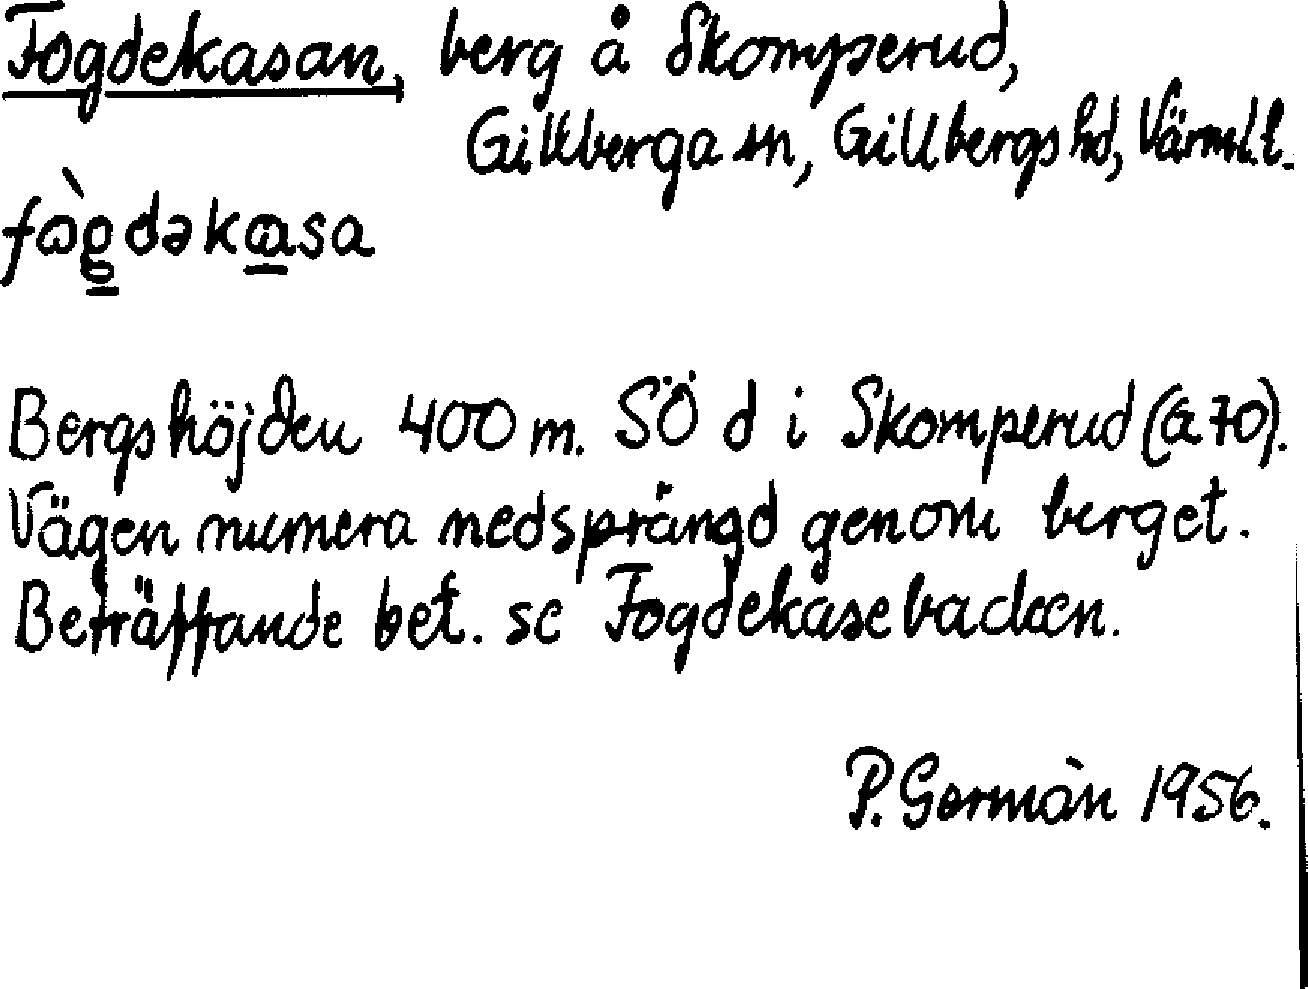 Fogdekasan, berg å Skomperud,
Gillberga sn, Gillbergs hd, Värml. l.
fògdəkasa
Bergshöjden 400 m. SÖ d i Skomperud (a 70).
Vägen numera nedsprängd genom berget.
Beträffande bet. se Fogdekasebacken.
P. Germán 1956.